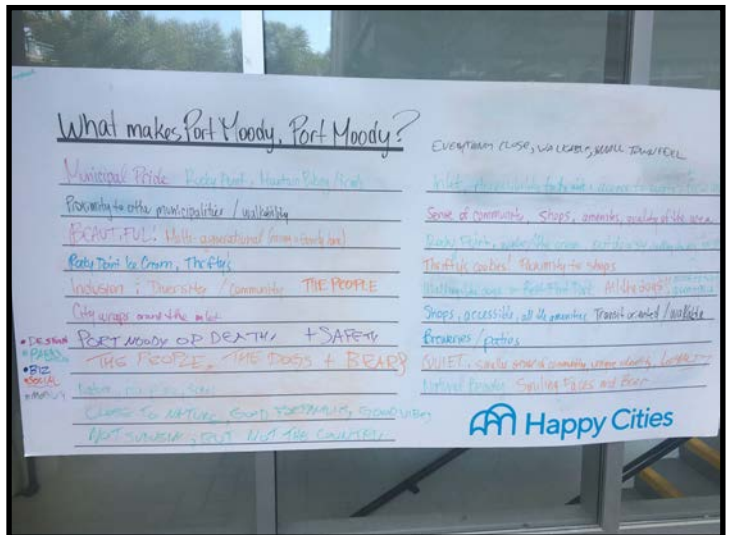 What makes Port Moody, Port Moody?
Municipal Pride Rocky Point, Mountain Biking / trails
Proximity to other municipalities / walkability
BEAUTIFUL! Multi-generational
Rocky Point Ice Cream, Thrifty's
Inclusion & Diversity / community THE PEOPLE
City wraps around the inlet
PORT MOODY OR DEATH! + SAFETY
THE PEOPLE, THE DOGS + BEARS
Nature,
CLOSE TO NATURE, GOOD GOOD VIBES
NOT SUBURBIA, BUT NOT THE COUNTRY
• DESIGN
• PARKS
• BIZ
• SOCIAL
• MOBILITY
EVERYTHING CLOSE, WALKABLE, SMALL TOWN FEEL
Inlet,
Sense of community, shops, amenities, quality of the area
Rocky Point,
Thrifty's cookies! Proximity to shops
Walking the dogs All the dogs!
Shops, accessible, all the amenities Transit oriented / walkable
Breweries / patios
QUIET, smaller sense of community, unique identity,
Natural Smiling Faces and Beer
Happy Cities